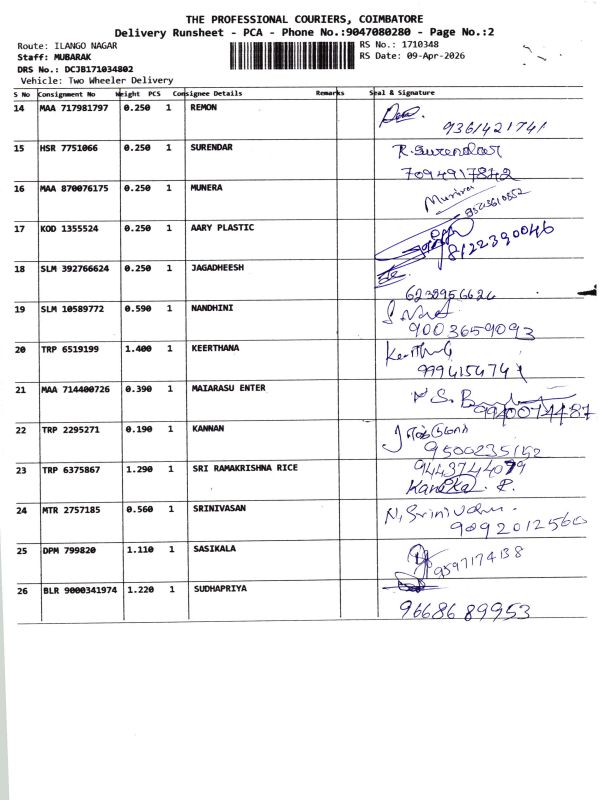 THE PROFESSIONAL COURIERS, COIMBATORE
Delivery Runsheet - PCA - Phone No.:9047080280 - Page No.:2
Route: ILANGO NAGAR RS No.: 1710348
Staff: MUBARAK RS Date: 09-Apr-2026
DRS No.: DCJB171034802
Vehicle: Two Wheeler Delivery
S No Consignment No Weight PCS Consignee Details Remarks Seal & Signature
14 MAA 717981797 0.250 1 REMON
9361421741
15 HSR 7751066 0.250 1 SURENDAR R. Surendar
7094917842
16 MAA 870076175 0.250 1 MUNERA
17 KOD 1355524 0.250 1 AARY PLASTIC 8122390046
18 SLM 392766624 0.250 1 JAGADHEESH
6238956626
19 SLM 10589772 0.590 1 NANDHINI
9003659093
20 TRP 6519199 1.400 1 KEERTHANA
9994154741
21 MAA 714400726 0.390 1 MAIARASU ENTER
9940074487
22 TRP 2295271 0.190 1 KANNAN
9500235152
23 TRP 6375867 1.290 1 SRI RAMAKRISHNA RICE 9443744079
R.
24 MTR 2757185 0.560 1 SRINIVASAN
9092012560
25 DPM 799820 1.110 1 SASIKALA 9597174138
26 BLR 9000341974 1.220 1 SUDHAPRIYA
9668689953